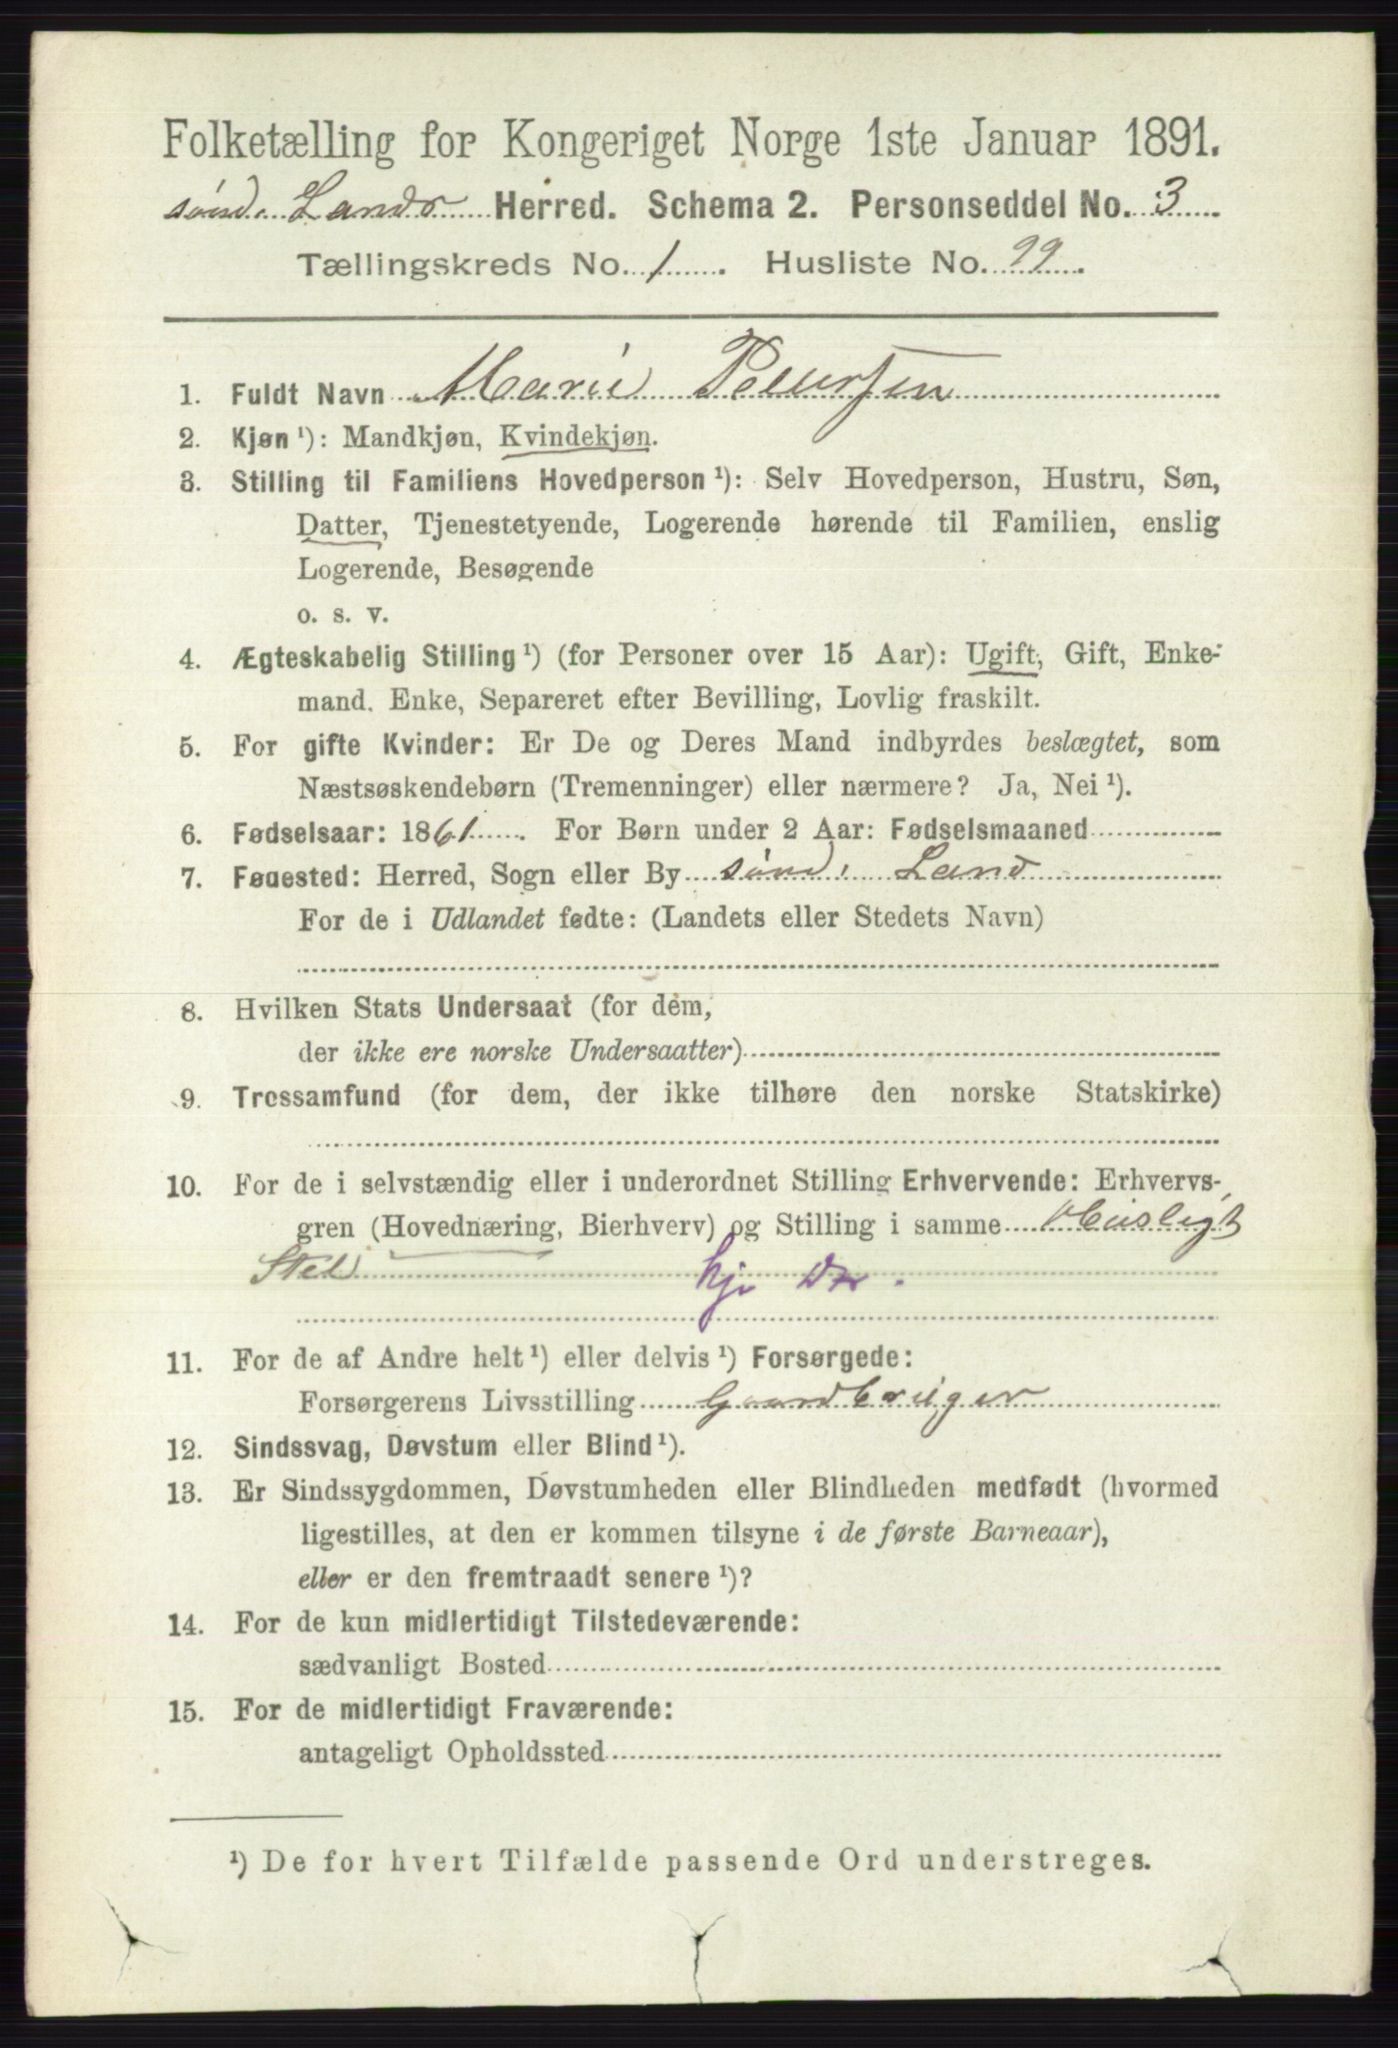 Folketælling for Kongeriget Norge 1ste Januar 1891.
sønd. Lands Herred. Schema 2. Personseddel No. 3
Tællingskreds No. 1. Husliste No. 99.
1. Fuldt Navn Marie Pedersen
2. Kjøn ¹): Mandkjøn, Kvindekjøn.
3. Stilling til Familiens Hovedperson ¹): Selv Hovedperson, Hustru, Søn,
Datter, Tjenestetyende, Logerende hørende til Familien, enslig
Logerende, Besøgende
o. s. v.
4. Ægteskabelig Stilling ¹) (for Personer over 15 Aar): Ugift, Gift, Enke-
mand. Enke, Separeret efter Bevilling, Lovlig fraskilt.
5. For gifte Kvinder: Er De og Deres Mand indbyrdes beslægtet, som
Næstsøskendebørn (Tremenninger) eller nærmere? Ja, Nei ¹).
6. Fødselsaar: 1861. For Børn under 2 Aar: Fødselsmaaned
7. Fødested: Herred, Sogn eller By sønd. Land
For de i Udlandet fødte: (Landets eller Stedets Navn)
8. Hvilken Stats Undersaat (for dem,
der ikke ere norske Undersaatter)
9. Trossamfund (for dem, der ikke tilhøre den norske Statskirke)
10. For de i selvstændig eller i underordnet Stilling Erhvervende: Erhvervs-
gren (Hovednæring, Bierhverv) og Stilling i samme Husligt
Stel hj. Dr.
11. For de af Andre helt ¹) eller delvis ¹) Forsørgede:
Forsørgerens Livsstilling Gaardbruger
12. Sindssvag, Døvstum eller Blind ¹).
13. Er Sindssygdommen, Døvstumheden eller Blindheden medfødt (hvormed
ligestilles, at den er kommen tilsyne i de første Barneaar),
eller er den fremtraadt senere ¹)?
14. For de kun midlertidigt Tilstedeværende:
sædvanligt Bosted
15. For de midlertidigt Fraværende:
antageligt Opholdssted
¹) De for hvert Tilfælde passende Ord understreges.